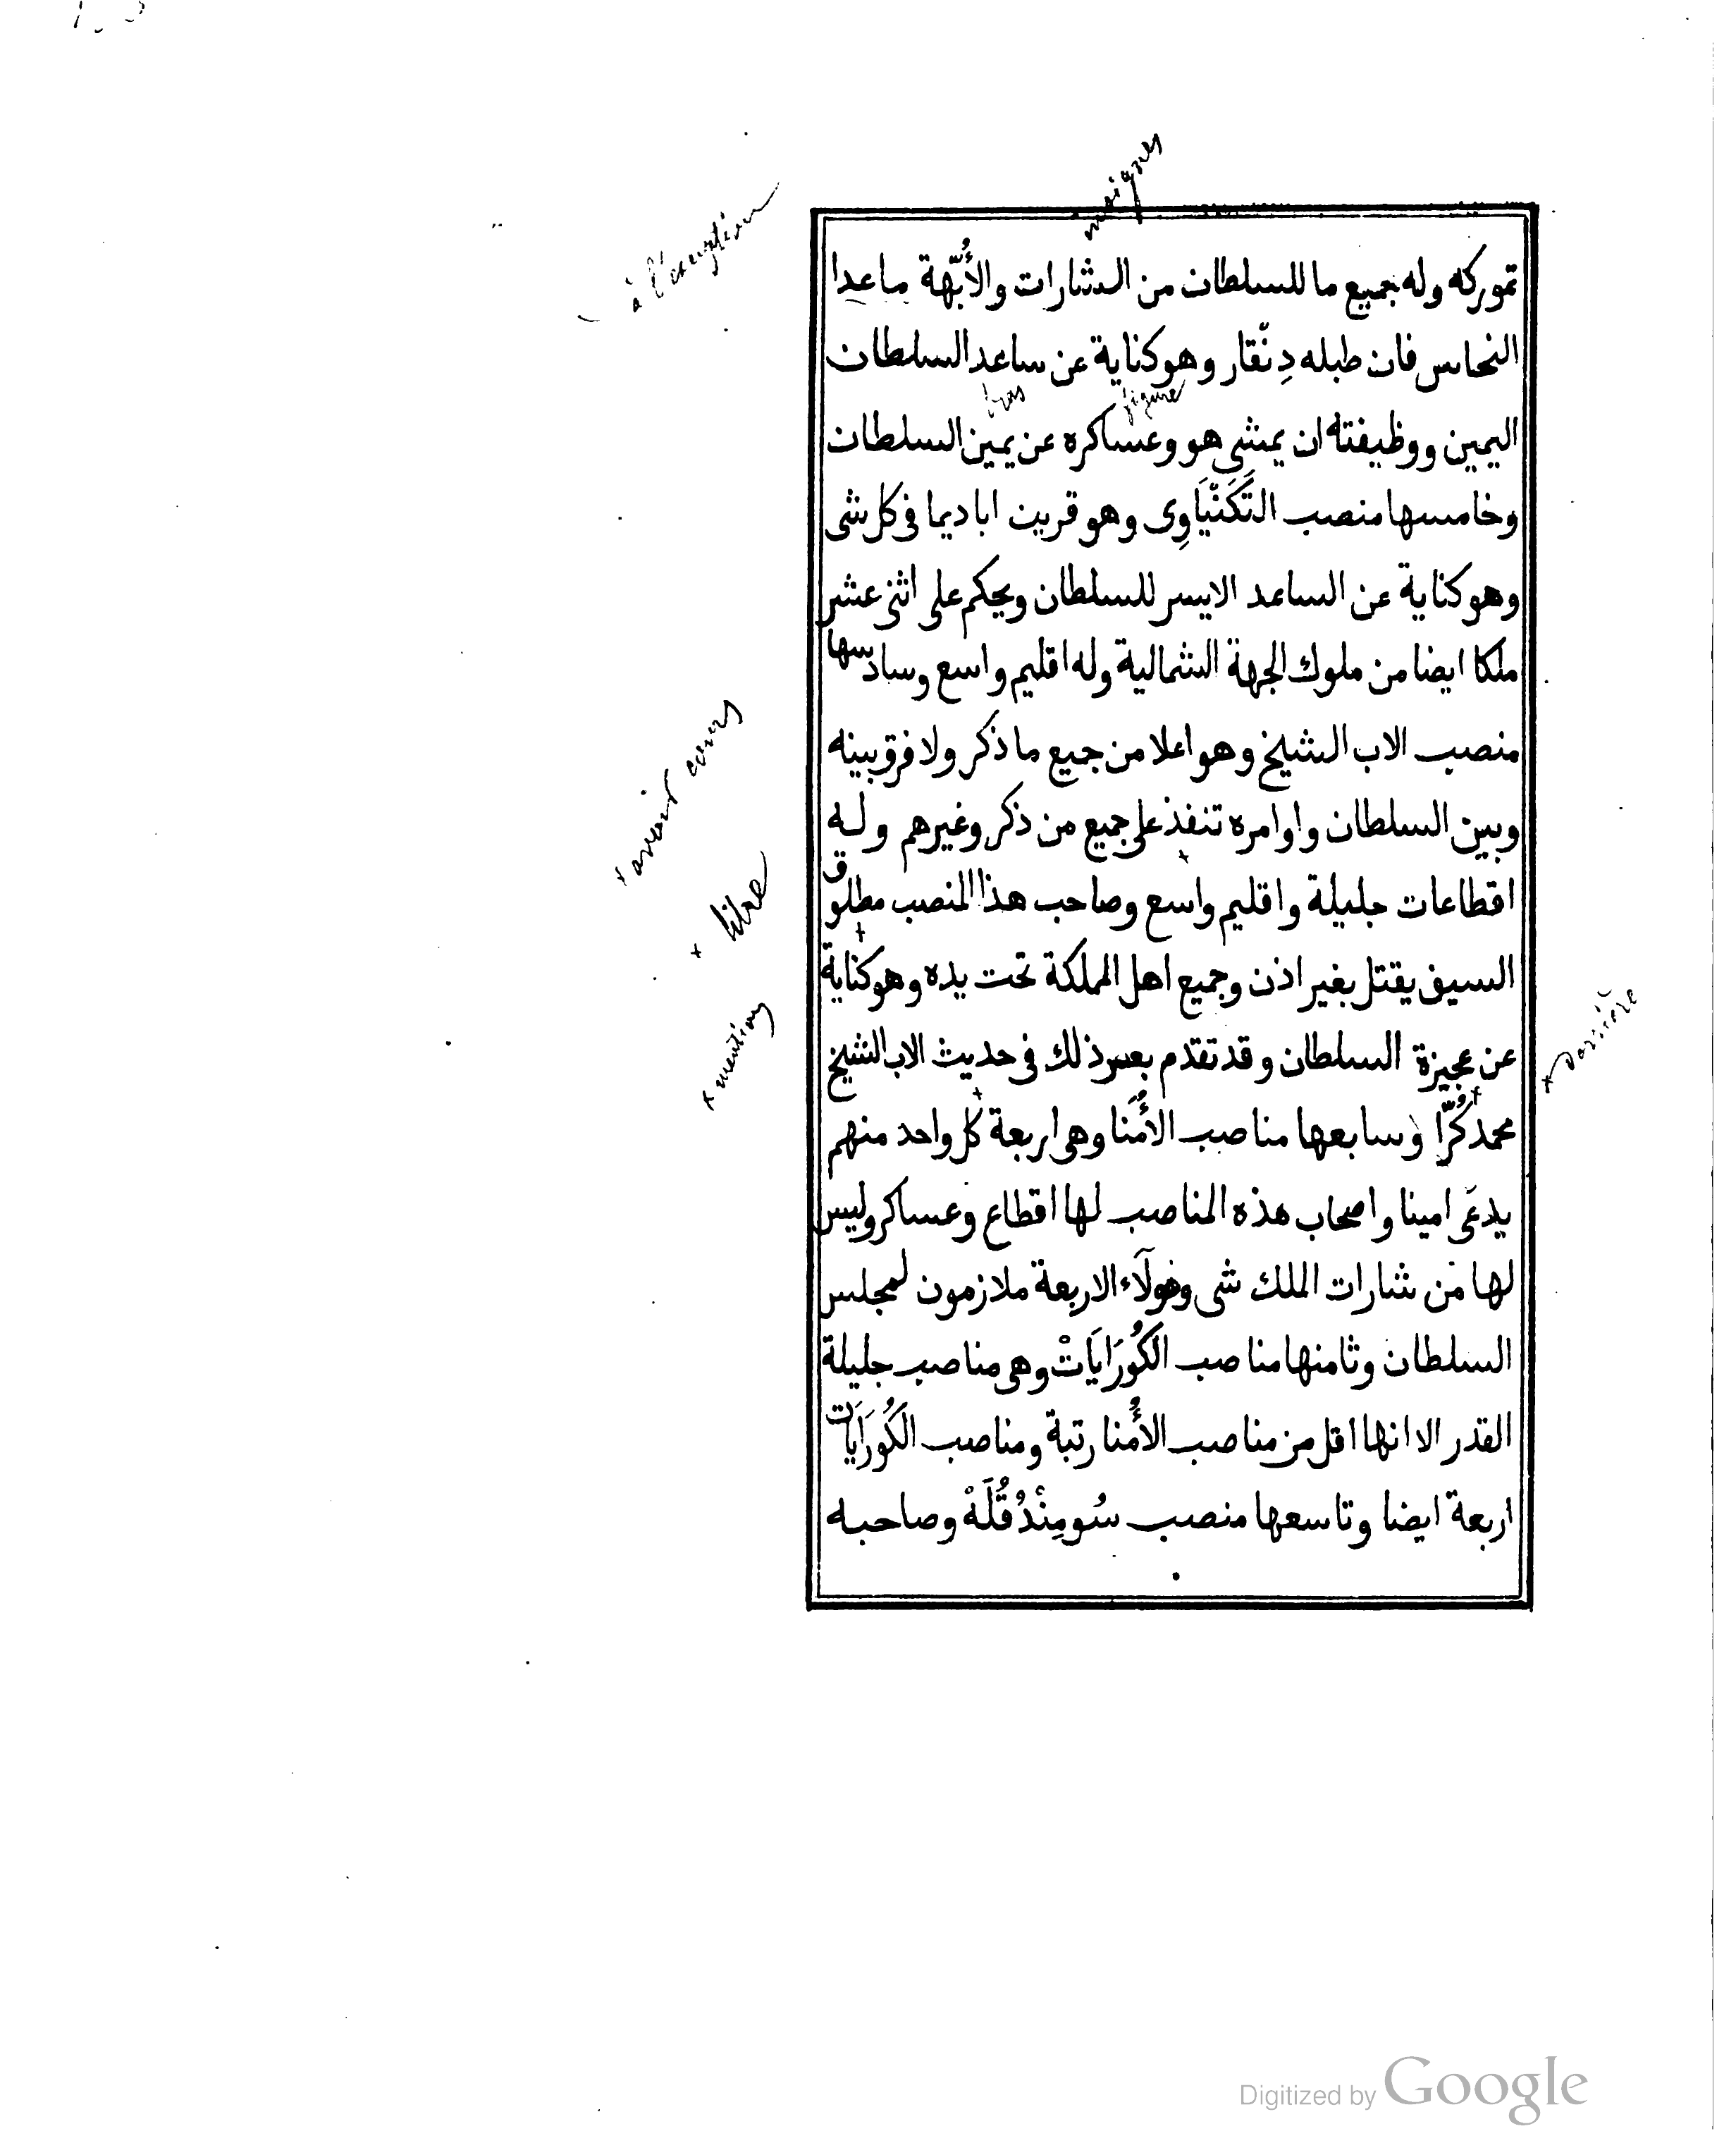 insignes
à l'exception
تموركه وله جميع ما للسلطان من الشارات والأُبّهة ماعدا
النحاس فان طبله دِنْقار وهو كناية عن ساعد السلطان
bras figure
اليمين ووظيفته ان يمشى هو وعساكره عن يمين السلطان
وخامسها منصب التَكَنْيَاوِى وهو قرين اباديما فى كل شى
وهو كناية عن الساعد الايسر للسلطان ويحكم على اثنى عشر
ملكا ايضا من ملوك الجهة الشمالية وله اقليم واسع وسادسها
منصب الاب الشيخ وهو اعلا من جميع ما ذكر ولا فرق بينه
وبين السلطان واوامره تنفذ على جميع من ذكر وغيرهم وله
+ avoir cours
اقطاعات جليلة واقليم واسع وصاحب هذا المنصب مطلوق
+ libre
السيف يقتل بغير اذن وجميع اهل المملكة تحت يده وهو كناية
عن عجيزة السلطان وقد تقدم بعس ذلك فى حديث الاب الشيخ
+ derrière
+ mention
محمد كُرّا وسابعها مناصب الأُمَنا وهى اربعة كل واحد منهم
يدعَى امينا واصحاب هذه المناصب لها اقطاع وعساكر وليس
لها من شارات الملك شى وهولآء الاربعة ملازمون لمجلس
السلطان وثامنها مناصب الكُورَايَاتْ وهى مناصب جليلة
القدر الا انها اقل من مناصب الأُمنا رتبة ومناصب الكُورَايَات
اربعة ايضا وتاسعها منصب سُومِنْدُقُلَهْ وصاحبه
Digitized by Google